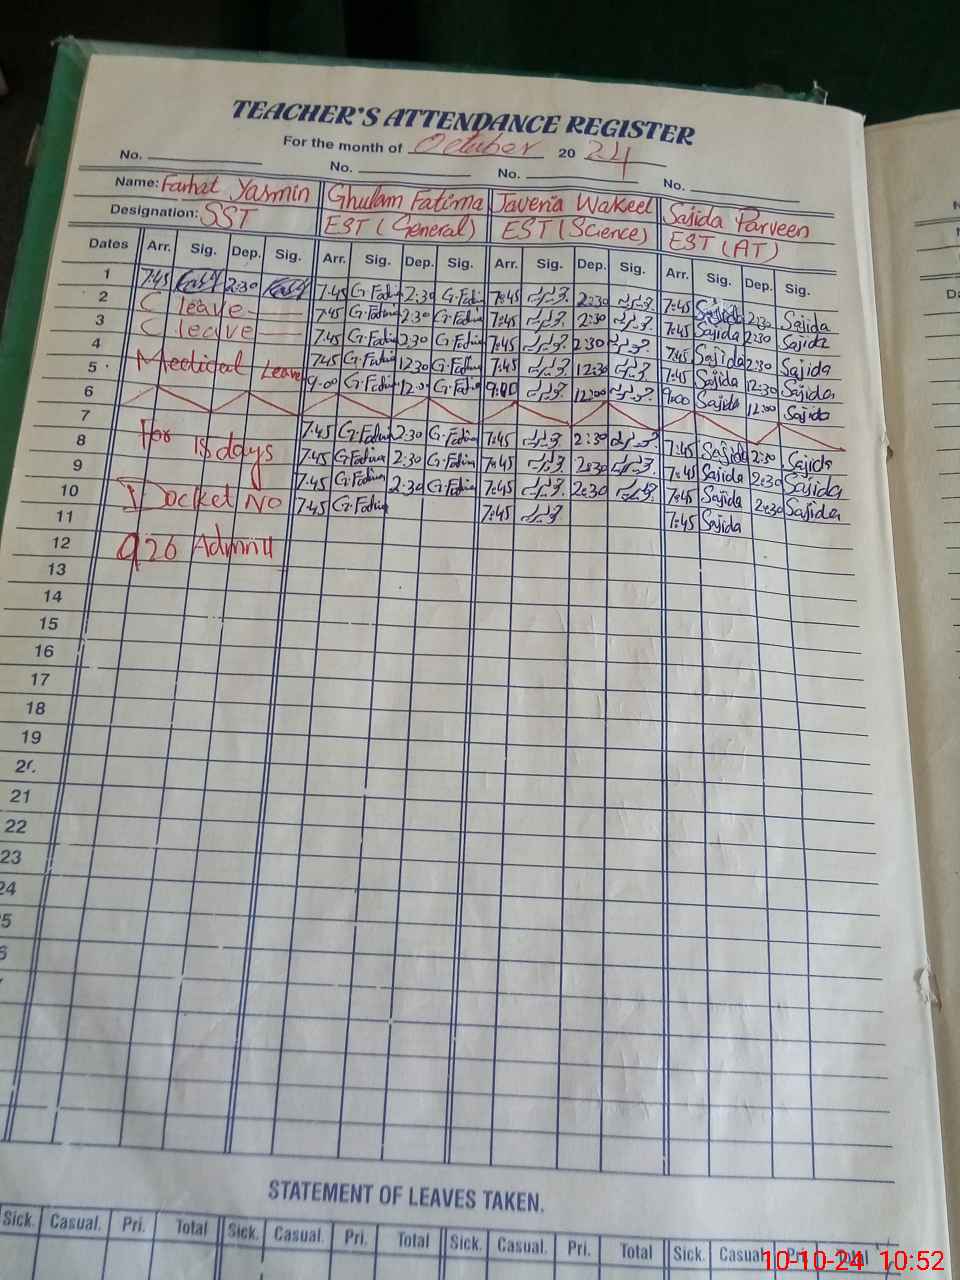 TEACHER'S ATTENDANCE REGISTER
For the month of October 2024
No. No. No. No.
Name: Farhat Yasmin Ghulam Fatima Javeria Wakeel Sajida Parveen
Designation: SST EST (General) EST (Science) EST (AT)
Dates Arr. Sig. Dep. Sig. Arr. Sig. Dep. Sig. Arr. Sig. Dep. Sig. Arr. Sig. Dep. Sig.
1 7:45 2:30 7:45 G.Fatima 2:30 G.Fatima 7:45 2:30 7:45 Sajida 2:30 Sajida
2 C leave 7:45 G.Fatima 2:30 G.Fatima 7:45 2:30 7:45 Sajida 2:30 Sajida
3 C leave 7:45 G.Fatima 2:30 G.Fatima 7:45 2:30 7:45 Sajida 2:30 Sajida
4 Medical Leave 7:45 G.Fatima 12:30 G.Fatima 7:45 12:30 7:45 Sajida 12:30 Sajida
5 9:00 G.Fatima 12:00 G.Fatima 9:00 12:00 9:00 Sajida 12:00 Sajida
6
7 For 18 days 7:45 G.Fatima 2:30 G.Fatima 7:45 2:30 7:45 Sajida 2:30 Sajida
8 7:45 G.Fatima 2:30 G.Fatima 7:45 2:30 7:45 Sajida 2:30 Sajida
9 Docket No 7:45 G.Fatima 2:30 G.Fatima 7:45 2:30 7:45 Sajida 2:30 Sajida
10 7:45 G.Fatima 7:45 7:45 Sajida
11 926
12
13
14
15
16
17
18
19
20
21
22
23
24
STATEMENT OF LEAVES TAKEN.
Sick. Casual. Pri. Total Sick. Casual. Pri. Total Sick. Casual. Pri. Total Sick. Casual Pri. Total
10-10-24 10:52